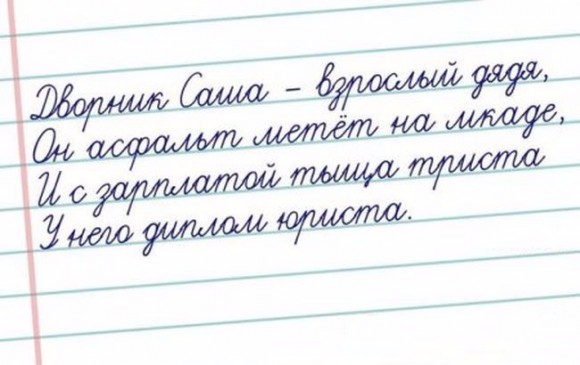 Дворник Саша - взрослый дядя,
Он асфальт метёт на мкаде,
И с зарплатой тыща триста
У него диплом юриста.